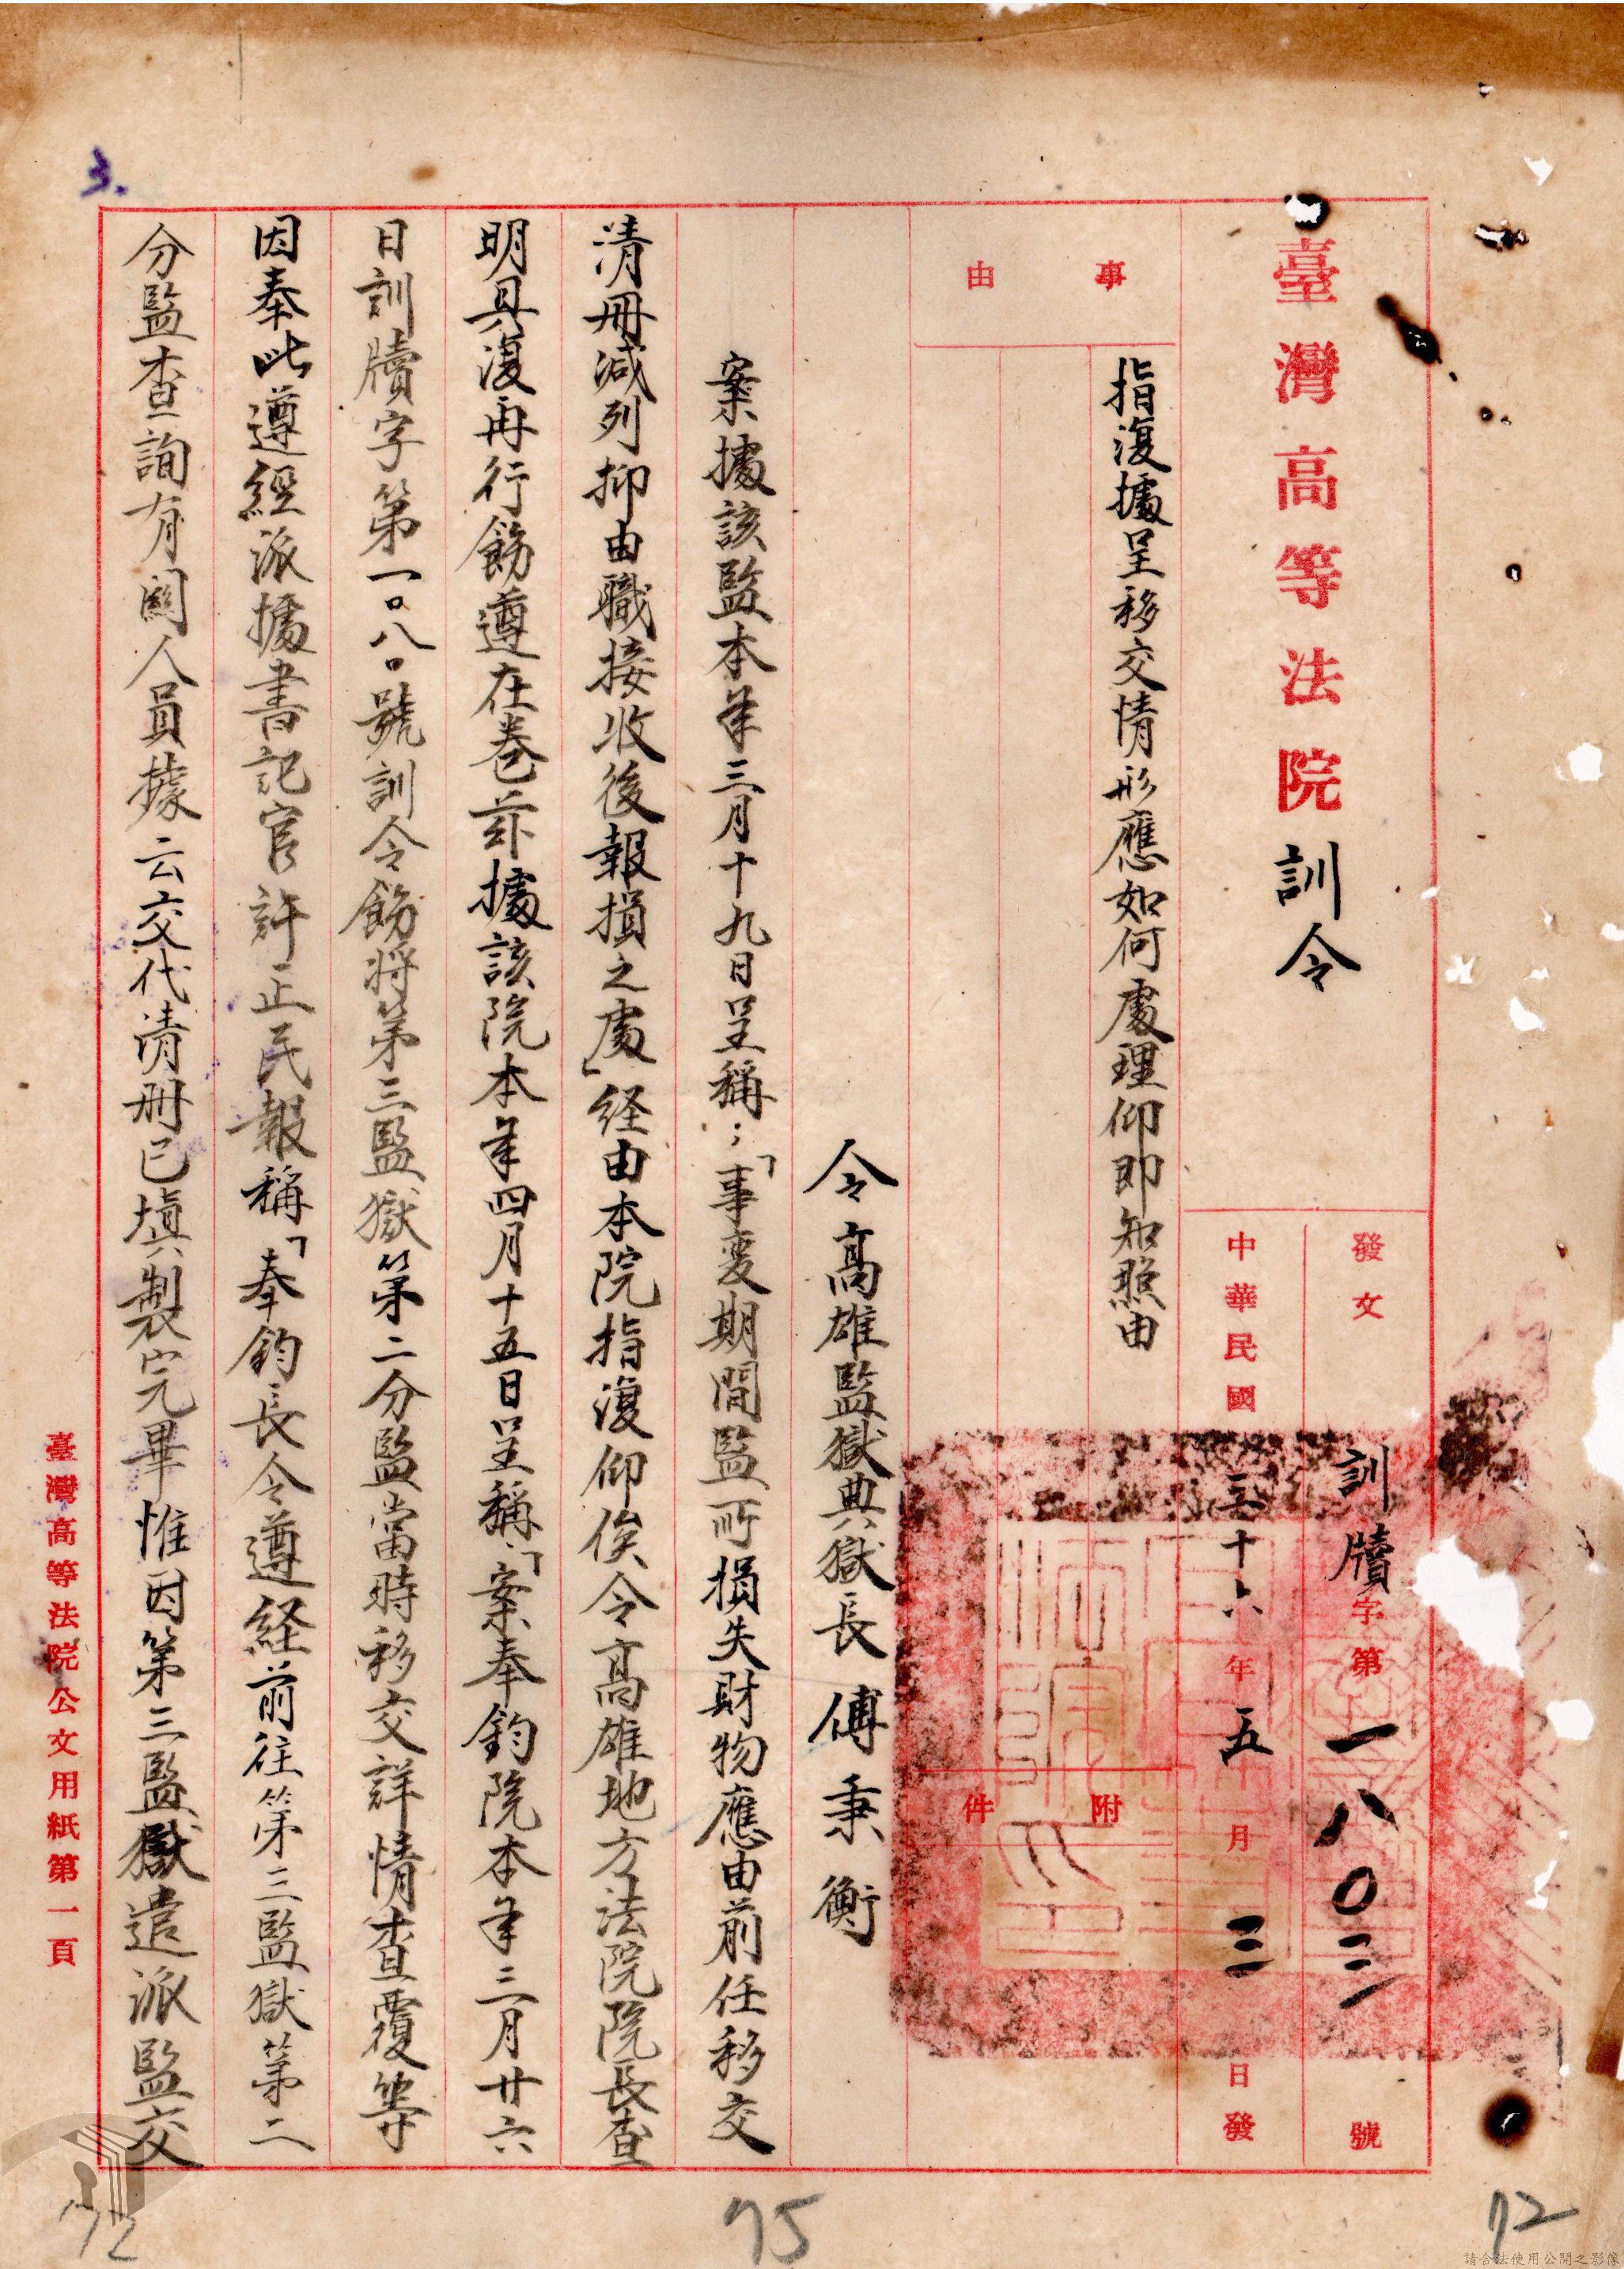 臺灣高等法院訓令
發文 訓牘字第一八〇三號
中華民國三十六年五月三日發
事由
指復據呈移交情形應如何處理仰即知照由
附件
令高雄監獄典獄長傅秉衡
案據該監本年三月十九日呈稱：「事变期間監所損失財物應由前任移交
清冊減列抑由職接收後報損之處」経由本院指復仰俟令高雄地方法院院長查
明具復再行飭遵在卷茲據該院本年四月十五日呈稱：「案奉鈞院本年三月廿六
日訓牘字第一〇八〇號訓令飭將第三監獄第二分監當時移交詳情查覆等
因奉此遵經派據書記官許正民報稱「奉鈞長令遵経前往第三監獄第二
分監查詢有關人員據云交代清冊已填製完畢惟因第三監獄遣派監交
臺灣高等法院公文用紙第一頁
3.
72
75
72
請合法使用公開之影像